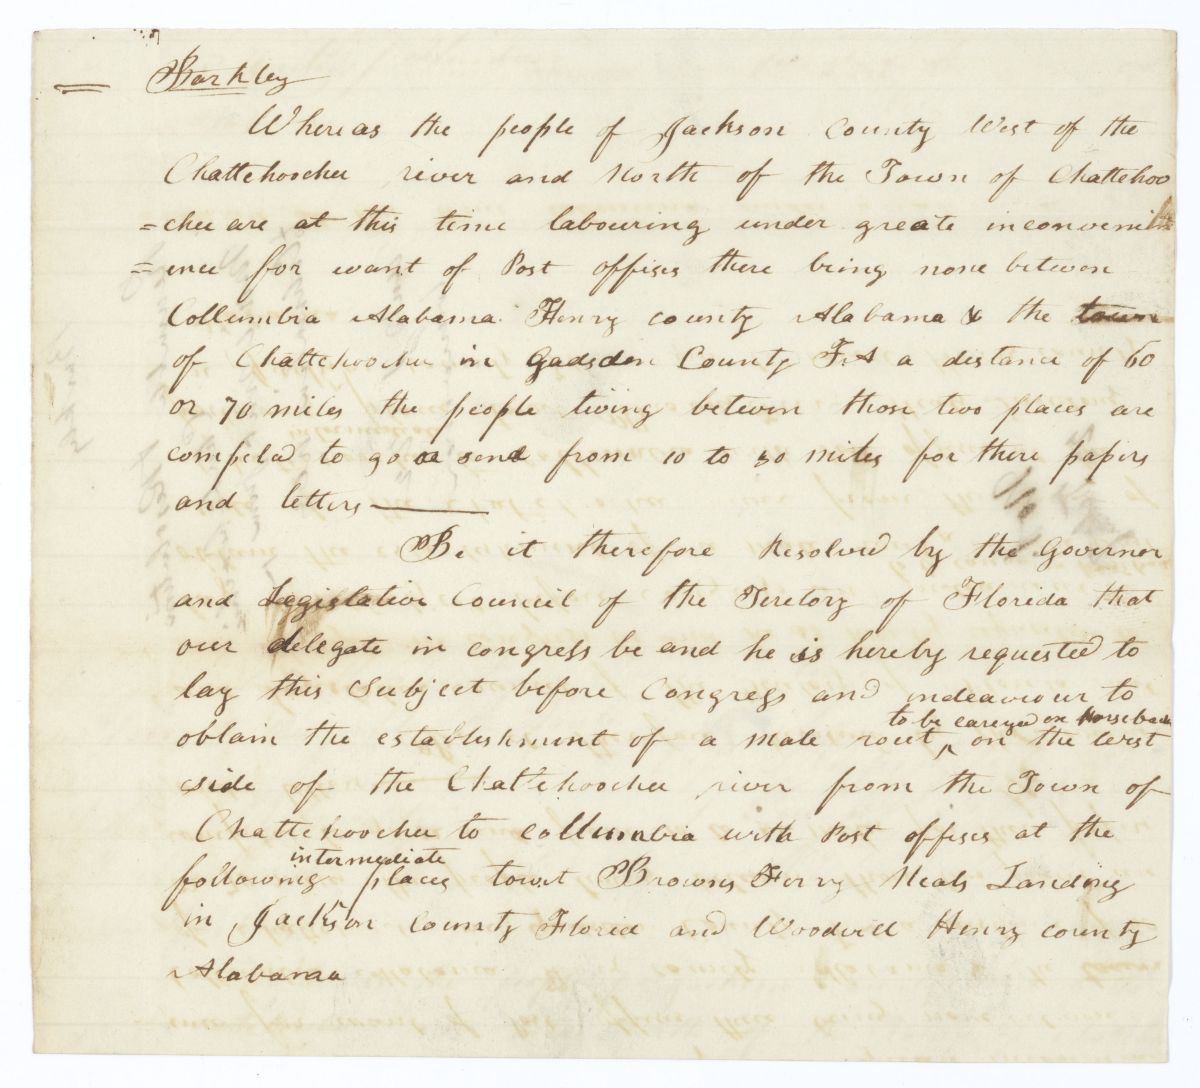 Barkley
Whereas the people of Jackson County West of the
Chattehoochee river and North of the Town of Chattehoo
=chee are at this time labouring under greate inconveni
=ence for want of Post offises there being none betwen
Collumbia Alabama Henry county Alabama & the town
of Chattehoochee in Gadsden County F.A a distance of 60
or 70 miles the people living betwen those two places are
compeled to go or send from 10 to 30 miles for there papers
and letters
Be it therefore Resolved by the Governor
and Legislative Council of the Teretory of Florida that
our delegate in congress be and he is hereby requested to
lay this Subject before Congress and indeavour to
to be careyed on Horseback
obtain the establishment of a male rout ^ on the West
side of the Chattehoochee river from the Town of
Chattehoochee to Collumbia with Post offises at the
intermediate
following places towit Browns Ferry Neals Landing
in Jackson County Florid and Woodvill Henry county
Alabama